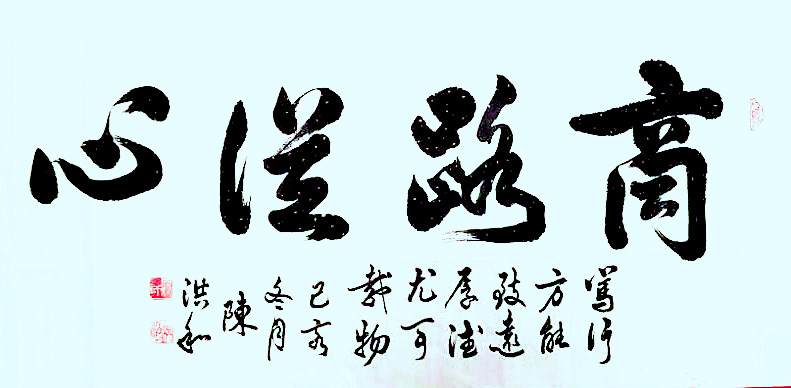 商路從心
篤行
方能
致遠
厚德
尤可
載物
己亥
冬月
陳
洪和